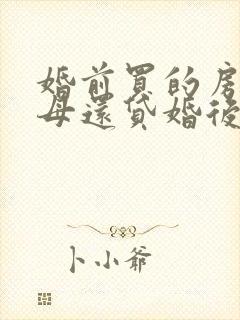 婚前買的房
母還貸婚後
卜小爺